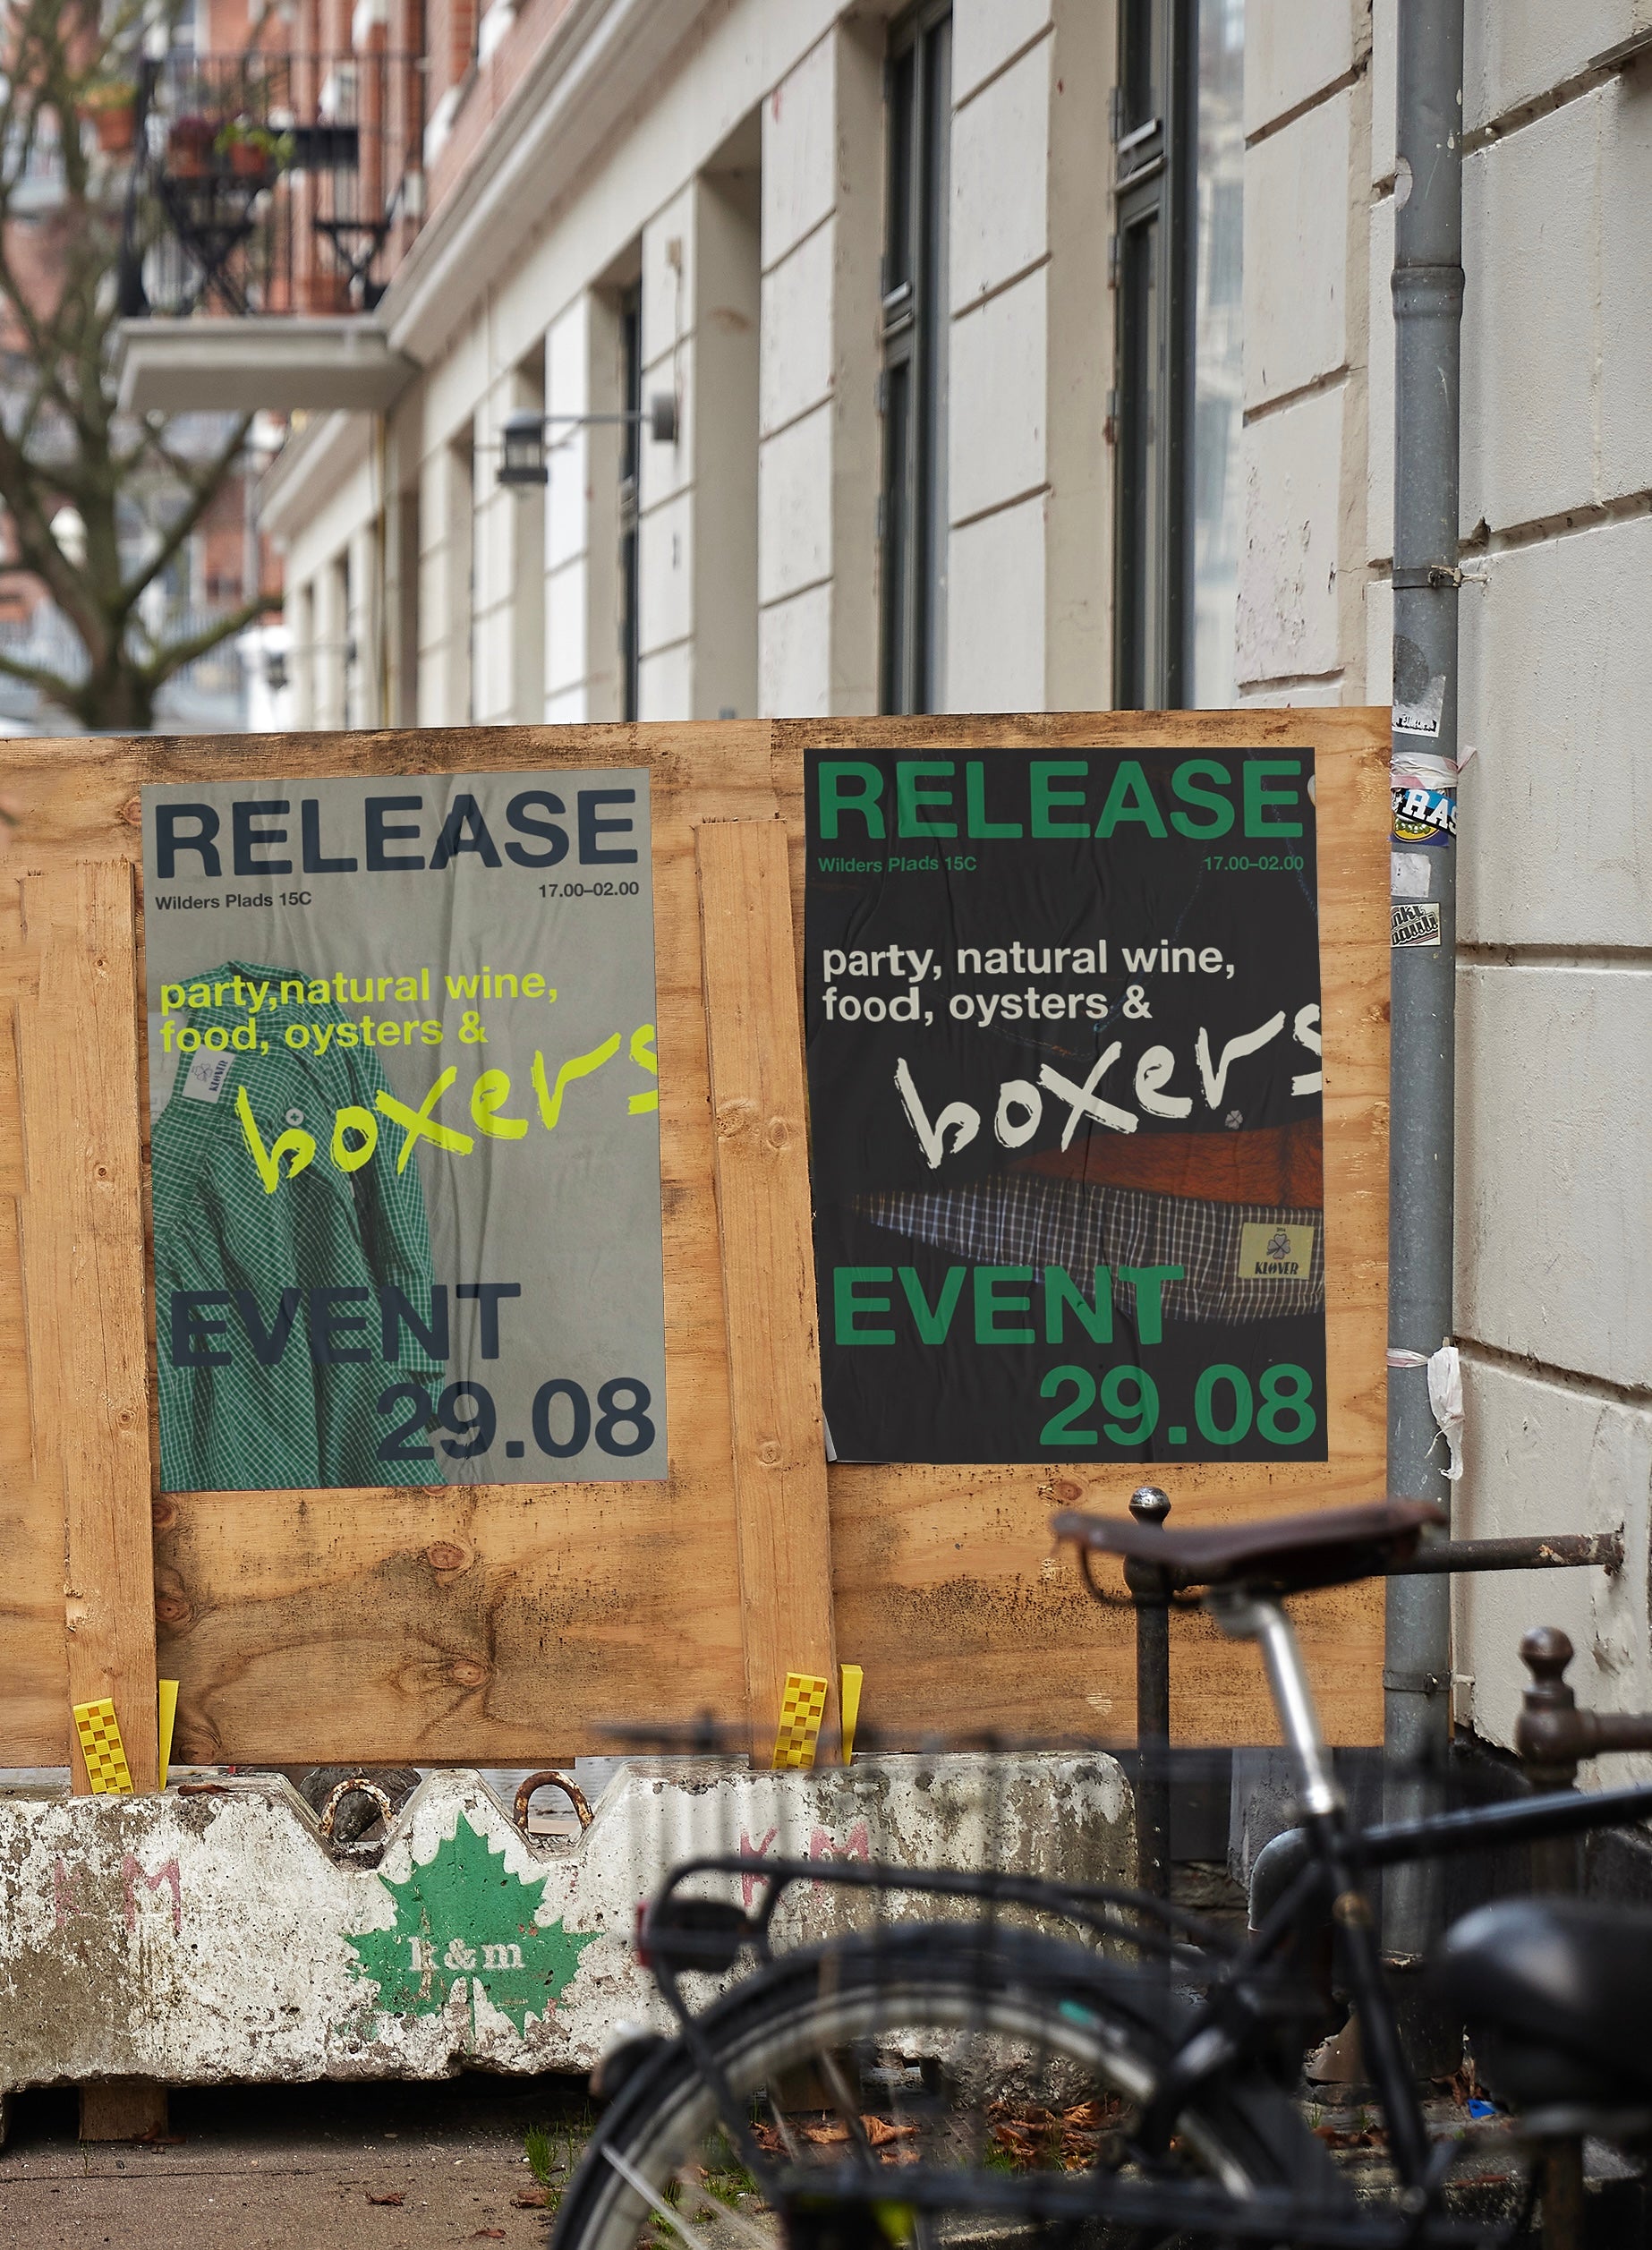 RELEASE
Wilders Plads 15C 17.00–02.00
party,natural wine,
food, oysters &
boxers
KLØVER
EVENT
29.08
RELEASE
Wilders Plads 15C 17.00–02.00
party, natural wine,
food, oysters &
boxers
KLØVER
EVENT
29.08
RAS
K M
K M
k&m